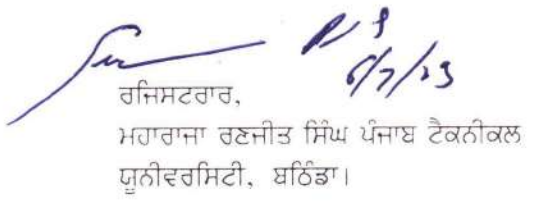 6/7/23
ਰਜਿਸਟਰਾਰ,
ਮਹਾਰਾਜਾ ਰਣਜੀਤ ਸਿੰਘ ਪੰਜਾਬ ਟੈਕਨੀਕਲ
ਯੂਨੀਵਰਸਿਟੀ, ਬਠਿੰਡਾ।